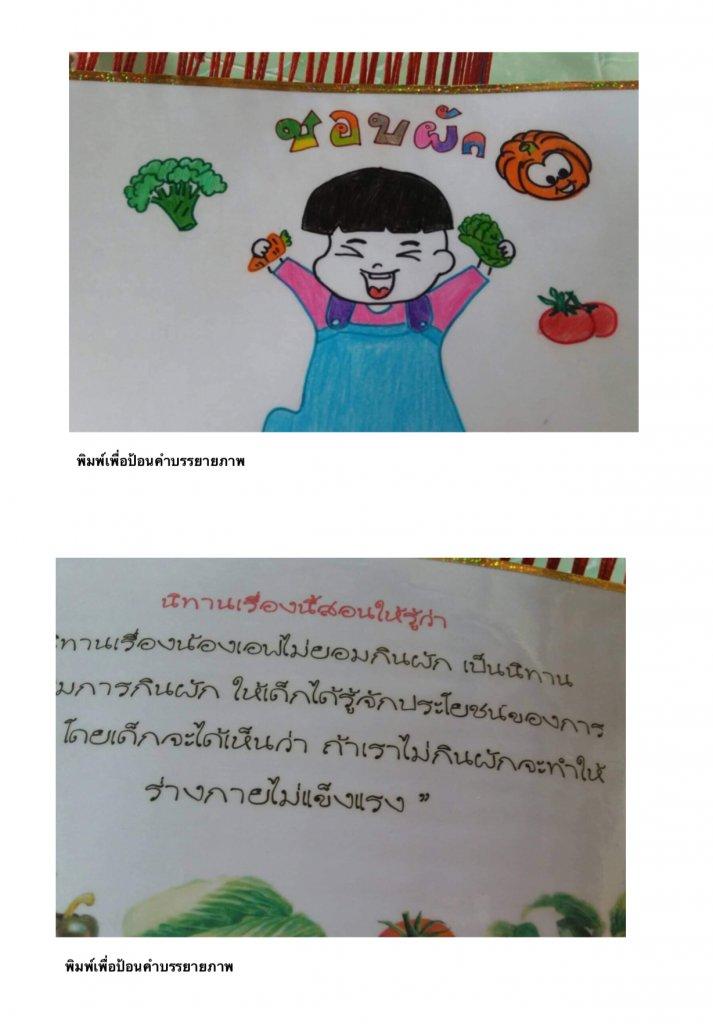 ชอบผัก
พิมพ์เพื่อป้อนคำบรรยายภาพ
นิทานเรื่องนี้สอนให้รู้ว่า
นิทานเรื่องน้องเอฟไม่ยอมกินผัก เป็นนิทาน
มการกินผัก ให้เด็กได้รู้จักประโยชน์ของการ
โดยเด็กจะได้เห็นว่า ถ้าเราไม่กินผักจะทำให้
ร่างกายไม่แข็งแรง ”
พิมพ์เพื่อป้อนคำบรรยายภาพ